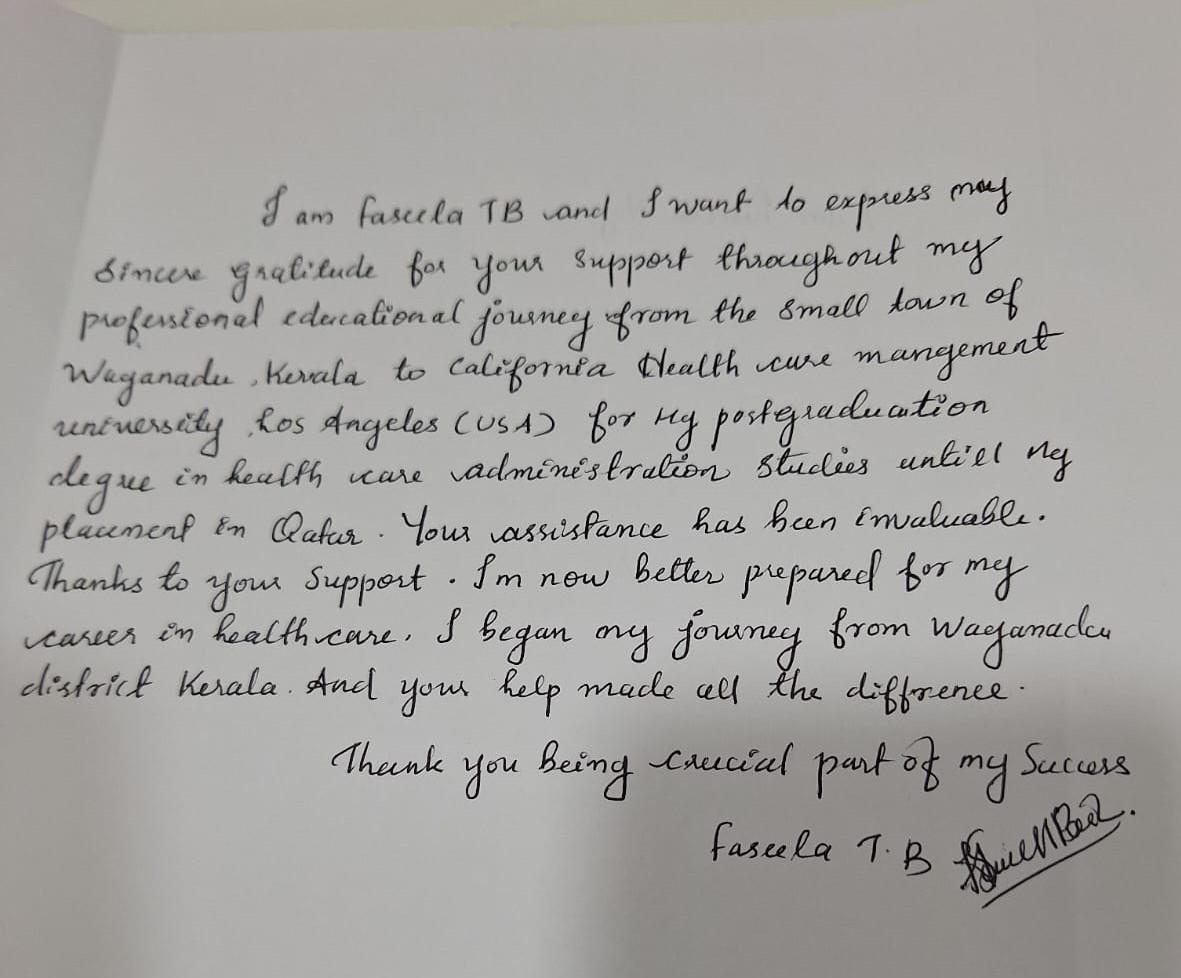 I am faseela TB and I want to express may
Sincere gratitude for your support throughout my
professional educational journey from the small town of
Wayanadu, Kerala to California Health care mangement
university, Los Angeles (USA) for My postgraduation
degree in health care administration studies untill my
placement in Qatar. Your assistance has been invaluable.
Thanks to your support. I'm now better prepared for my
career in healthcare. I began my journey from Wayanadu
district Kerala. And your help made all the diffrence.
Thank you being crucial part of my Success
faseela T.B